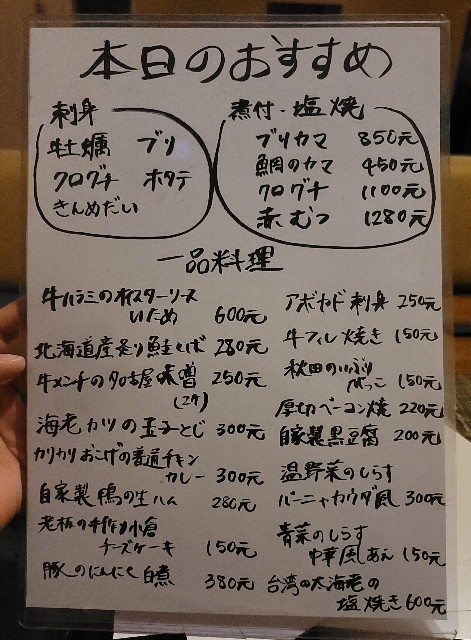 本日のおすすめ
刺身
牡蠣 ブリ
クログチ ホタテ
きんめだい
煮付・塩焼
ブリカマ 850元
鯛のカマ 450元
クログチ 1100元
赤むつ 1280元
一品料理
牛ハラミのオイスターソース
いため 600元
北海道産炙り鮭とば 280元
牛メンチの名古屋味噌 250元
海老カツの玉子とじ 300元
カリカリおこげの普通チキン
カレー 300元
自家製鴨の生ハム 280元
老板の手作り小倉
チーズケーキ 150元
豚のにんにく白煮 380元
アボカド刺身 250元
牛フィレ焼き 150元
秋田のいぶり
がっこ 150元
厚切ベーコン焼 220元
自家製黒豆腐 200元
温野菜のしらす
バーニャカウダ風 300元
青菜のしらす
中華風あえ 150元
台湾の大海老の
塩焼き 600元